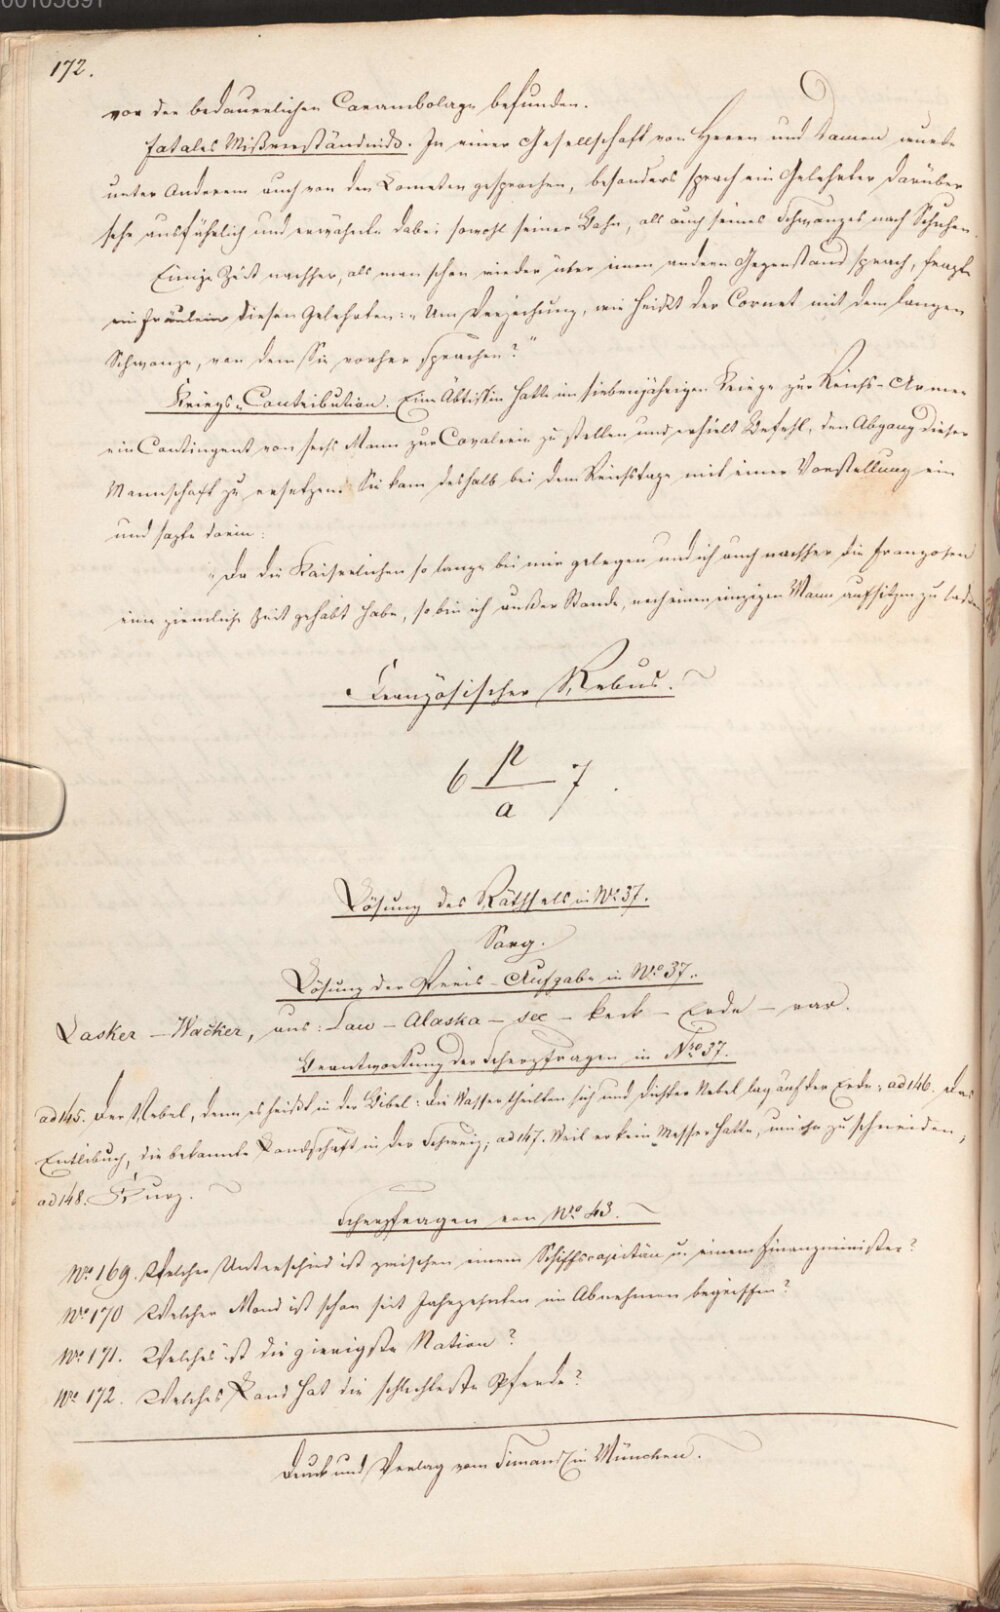 00105891
172.
vor der bedauerlichen Carambolage befunden.
Fatales Mißverständniß. In einer Gesellschaft von Herren und Damen wurde
unter Anderem auch von den Kometen gesprochen, besonders sprach ein Gelehrter darüber
sehr ausführlich und erwähnte dabei sowohl seiner Bahn, als auch seines Schwanzes nach Schuhen.
Einige Zeit nachher, als man schon wieder über einen andern Gegenstand sprach, fragte
ein Fräulein diesen Gelehrten: „Um Verzeihung, wie heißt der Cornet mit dem langen
Schwanze, von dem Sie vorher sprachen?"
Kriegs-Contribution. Eine Äbtissin hatte im siebenjährigen Kriege zur Reichs-Armee
ein Contingent von sechs Mann zur Cavalerie zu stellen und erhielt Befehl, den Abgang dieser
Mannschaft zu ersetzen. Sie kam deshalb bei dem Reichstage mit einer Vorstellung ein
und sagte darin:
„Da die Kaiserlichen so lange bei mir gelegen und ich auch nachher die Franzosen
eine ziemliche Zeit gehabt habe, so bin ich außer Stande, noch einen einzigen Mann aufsitzen zu lassen
Französischer Rebus.
6 p/a 7.
Lösung des Räthsels in No 37.
Sarg.
Lösung der Preis-Aufgabe in No 37.
Lasker – Wacker, aus: Law – Alaska – sec – keck – Erde – rar.
Beantwortung der Scherzfragen in Nro 37.
ad 145. Der Nebel, denn es heißt in der Bibel: die Wasser theilten sich und dichter Nebel lag auf der Erde; ad 146. Das
Entlibuch, die bekannte Landschaft in der Schweiz; ad 147. Weil er kein Messer hatte, um ihn zu schneiden;
ad 148. Kurz.
Scherzfragen von Nro 43.
No 169. Welcher Unterschied ist zwischen einem Schiffscapitän u. einem Finanzminister?
No 170 Welcher Mond ist schon seit Jahrzehnten im Abnehmen begriffen?
No 171. Welches ist die gierigste Nation?
No 172. Welches Land hat die schlechtesten Pferde?
Druck und Verlag von in München.